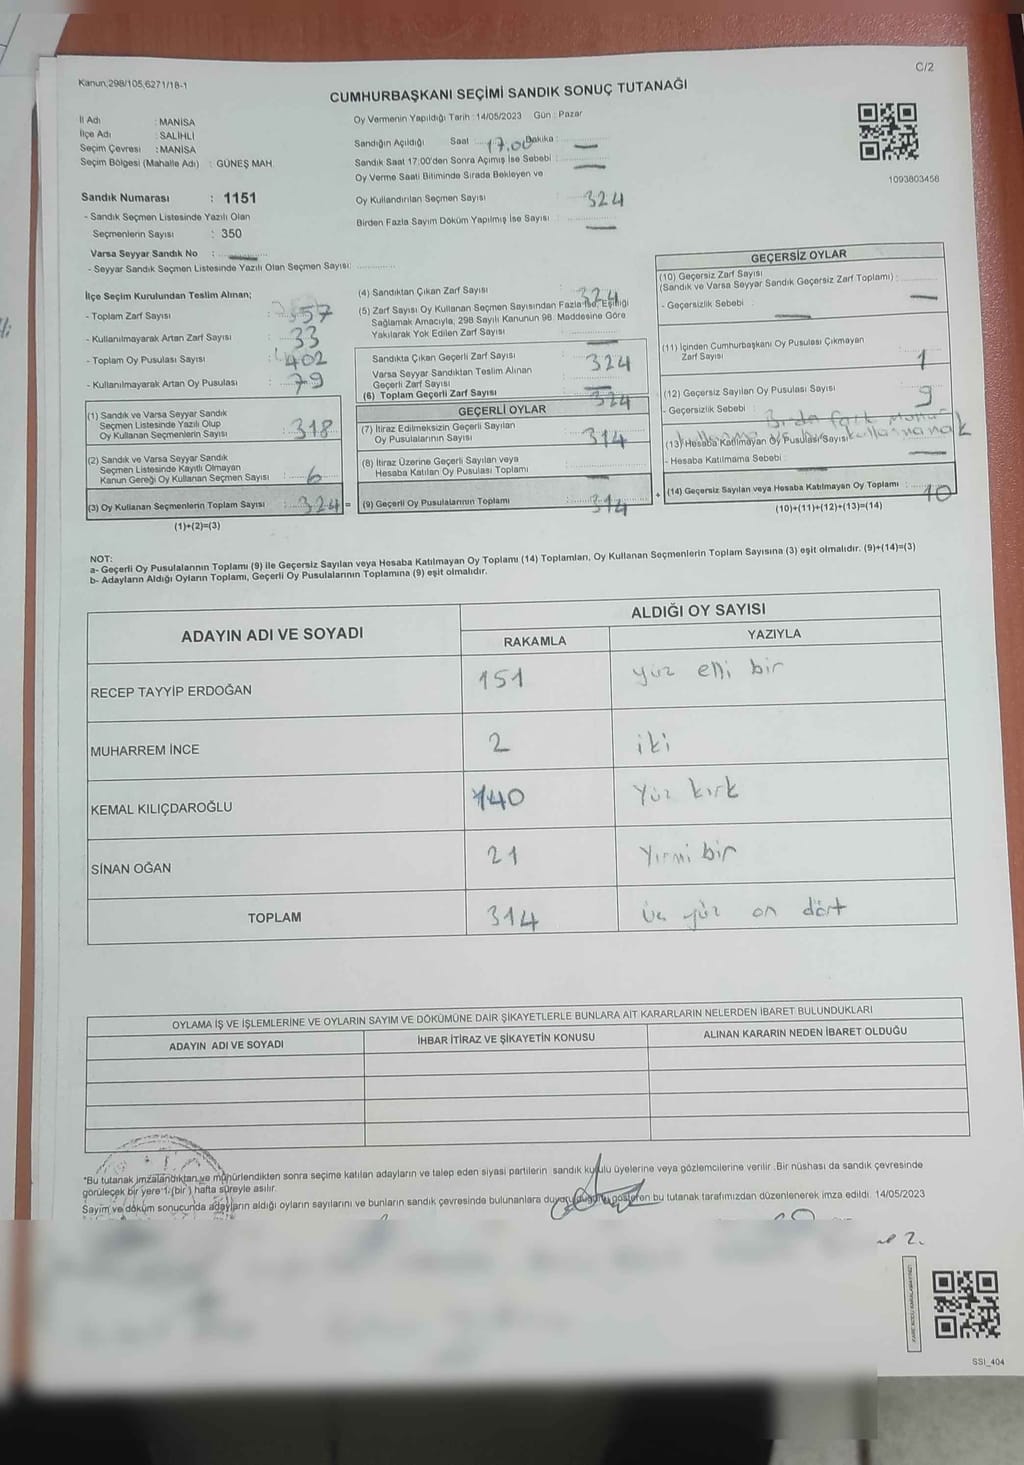 C/2
Kanun;298/105,6271/18-1
CUMHURBAŞKANI SEÇİMİ SANDIK SONUÇ TUTANAĞI
İl Adı : MANİSA
İlçe Adı : SALİHLİ
Seçim Çevresi : MANİSA
Seçim Bölgesi (Mahalle Adı) : GÜNEŞ MAH.
Oy Vermenin Yapıldığı Tarih : 14/05/2023 Gün : Pazar
Sandığın Açıldığı Saat : 17.00 Dakika : —
Sandık Saat 17:00'den Sonra Açımış İse Sebebi : —
Oy Verme Saati Bitiminde Sırada Bekleyen ve
Oy Kullandırılan Seçmen Sayısı 324
Birden Fazla Sayım Döküm Yapılmış İse Sayısı : —
1093803456
Sandık Numarası : 1151
- Sandık Seçmen Listesinde Yazılı Olan
Seçmenlerin Sayısı : 350
Varsa Seyyar Sandık No : —
- Seyyar Sandık Seçmen Listesinde Yazılı Olan Seçmen Sayısı:
İlçe Seçim Kurulundan Teslim Alınan;
- Toplam Zarf Sayısı : 357
- Kullanılmayarak Artan Zarf Sayısı : 33
- Toplam Oy Pusulası Sayısı : 402
- Kullanılmayarak Artan Oy Pusulası : 79
(1) Sandık ve Varsa Seyyar Sandık
Seçmen Listesinde Yazılı Olup
Oy Kullanan Seçmenlerin Sayısı : 318
(2) Sandık ve Varsa Seyyar Sandık
Seçmen Listesinde Kayıtlı Olmayan
Kanun Gereği Oy Kullanan Seçmen Sayısı : 6
(3) Oy Kullanan Seçmenlerin Toplam Sayısı : 324 =
(1)+(2)=(3)
(4) Sandıktan Çıkan Zarf Sayısı : 324
(5) Zarf Sayısı Oy Kullanan Seçmen Sayısından Fazla İse, Eşitliği
Sağlamak Amacıyla, 298 Sayılı Kanunun 98. Maddesine Göre
Yakılarak Yok Edilen Zarf Sayısı : —
Sandıkta Çıkan Geçerli Zarf Sayısı : 324
Varsa Seyyar Sandıktan Teslim Alınan
Geçerli Zarf Sayısı : —
(6) Toplam Geçerli Zarf Sayısı : 324
GEÇERLİ OYLAR
(7) İtiraz Edilmeksizin Geçerli Sayılan
Oy Pusulalarının Sayısı : 314
(8) İtiraz Üzerine Geçerli Sayılan veya
Hesaba Katılan Oy Pusulası Toplamı : —
(9) Geçerli Oy Pusulalarının Toplamı : 314 +
GEÇERSİZ OYLAR
(10) Geçersiz Zarf Sayısı
(Sandık ve Varsa Seyyar Sandık Geçersiz Zarf Toplamı) : —
- Geçersizlik Sebebi : —
(11) İçinden Cumhurbaşkanı Oy Pusulası Çıkmayan
Zarf Sayısı : 1
(12) Geçersiz Sayılan Oy Pusulası Sayısı : 9
- Geçersizlik Sebebi :
(13) Hesaba Katılmayan Oy Pusulası Sayısı : —
- Hesaba Katılmama Sebebi : —
(14) Geçersiz Sayılan veya Hesaba Katılmayan Oy Toplamı : 10
(10)+(11)+(12)+(13)=(14)
NOT:
a- Geçerli Oy Pusulalarının Toplamı (9) ile Geçersiz Sayılan veya Hesaba Katılmayan Oy Toplamı (14) Toplamları, Oy Kullanan Seçmenlerin Toplam Sayısına (3) eşit olmalıdır. (9)+(14)=(3)
b- Adayların Aldığı Oyların Toplamı, Geçerli Oy Pusulalarının Toplamına (9) eşit olmalıdır.
ADAYIN ADI VE SOYADI
ALDIĞI OY SAYISI
RAKAMLA YAZIYLA
RECEP TAYYİP ERDOĞAN 151 yüz elli bir
MUHARREM İNCE 2 iki
KEMAL KILIÇDAROĞLU 140 Yüz kırk
SİNAN OĞAN 21 Yirmi bir
TOPLAM 314 üç yüz on dört
OYLAMA İŞ VE İŞLEMLERİNE VE OYLARIN SAYIM VE DÖKÜMÜNE DAİR ŞİKAYETLERLE BUNLARA AİT KARARLARIN NELERDEN İBARET BULUNDUKLARI
ADAYIN ADI VE SOYADI İHBAR İTİRAZ VE ŞİKAYETİN KONUSU ALINAN KARARIN NEDEN İBARET OLDUĞU
*Bu tutanak imzalandıktan ve mühürlendikten sonra seçime katılan adayların ve talep eden siyasi partilerin sandık kurulu üyelerine veya gözlemcilerine verilir. Bir nüshası da sandık çevresinde
görülecek bir yere 1 (bir) hafta süreyle asılır.
Sayım ve döküm sonucunda adayların aldığı oyların sayılarını ve bunların sandık çevresinde bulunanlara duyurulduğunu gösteren bu tutanak tarafımızdan düzenlenerek imza edildi. 14/05/2023
SSI_404